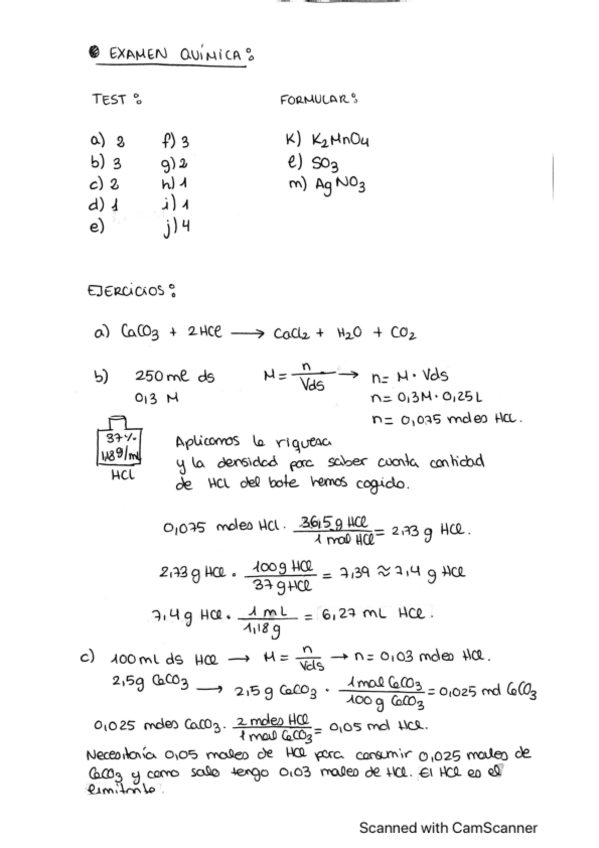 EXAMEN QUÍMICA:
TEST: FORMULAR:
a) 2 f) 3 K) K2MnO4
b) 3 g) 2 l) SO3
c) 2 h) 1 m) AgNO3
d) 1 i) 1
e) j) 4
EJERCICIOS:
a) CaCO3 + 2HCl → CaCl2 + H2O + CO2
b) 250 ml ds M = n/Vds → n = M · Vds
0,3 M n = 0,3M · 0,25L
n = 0,075 moles HCl.
37% 1,18g/ml
HCl
Aplicamos la riqueza
y la densidad para saber cuanta cantidad
de HCl del bote hemos cogido.
0,075 moles HCl · 36,5 g HCl / 1 mol HCl = 2,73 g HCl.
2,73 g HCl · 100g HCl / 37 g HCl = 7,39 ≈ 7,4 g HCl
7,4 g HCl · 1 mL / 1,18g = 6,27 mL HCl.
c) 100 ml ds HCl → M = n/Vds → n = 0,03 moles HCl.
2,5g CaCO3 → 2,5 g CaCO3 · 1 mol CaCO3 / 100 g CaCO3 = 0,025 mol CaCO3
0,025 moles CaCO3 · 2 moles HCl / 1 mol CaCO3 = 0,05 mol HCl.
Necesitaría 0,05 moles de HCl para consumir 0,025 moles de
CaCO3 y como solo tengo 0,03 moles de HCl. El HCl es el
limitante.
Scanned with CamScanner